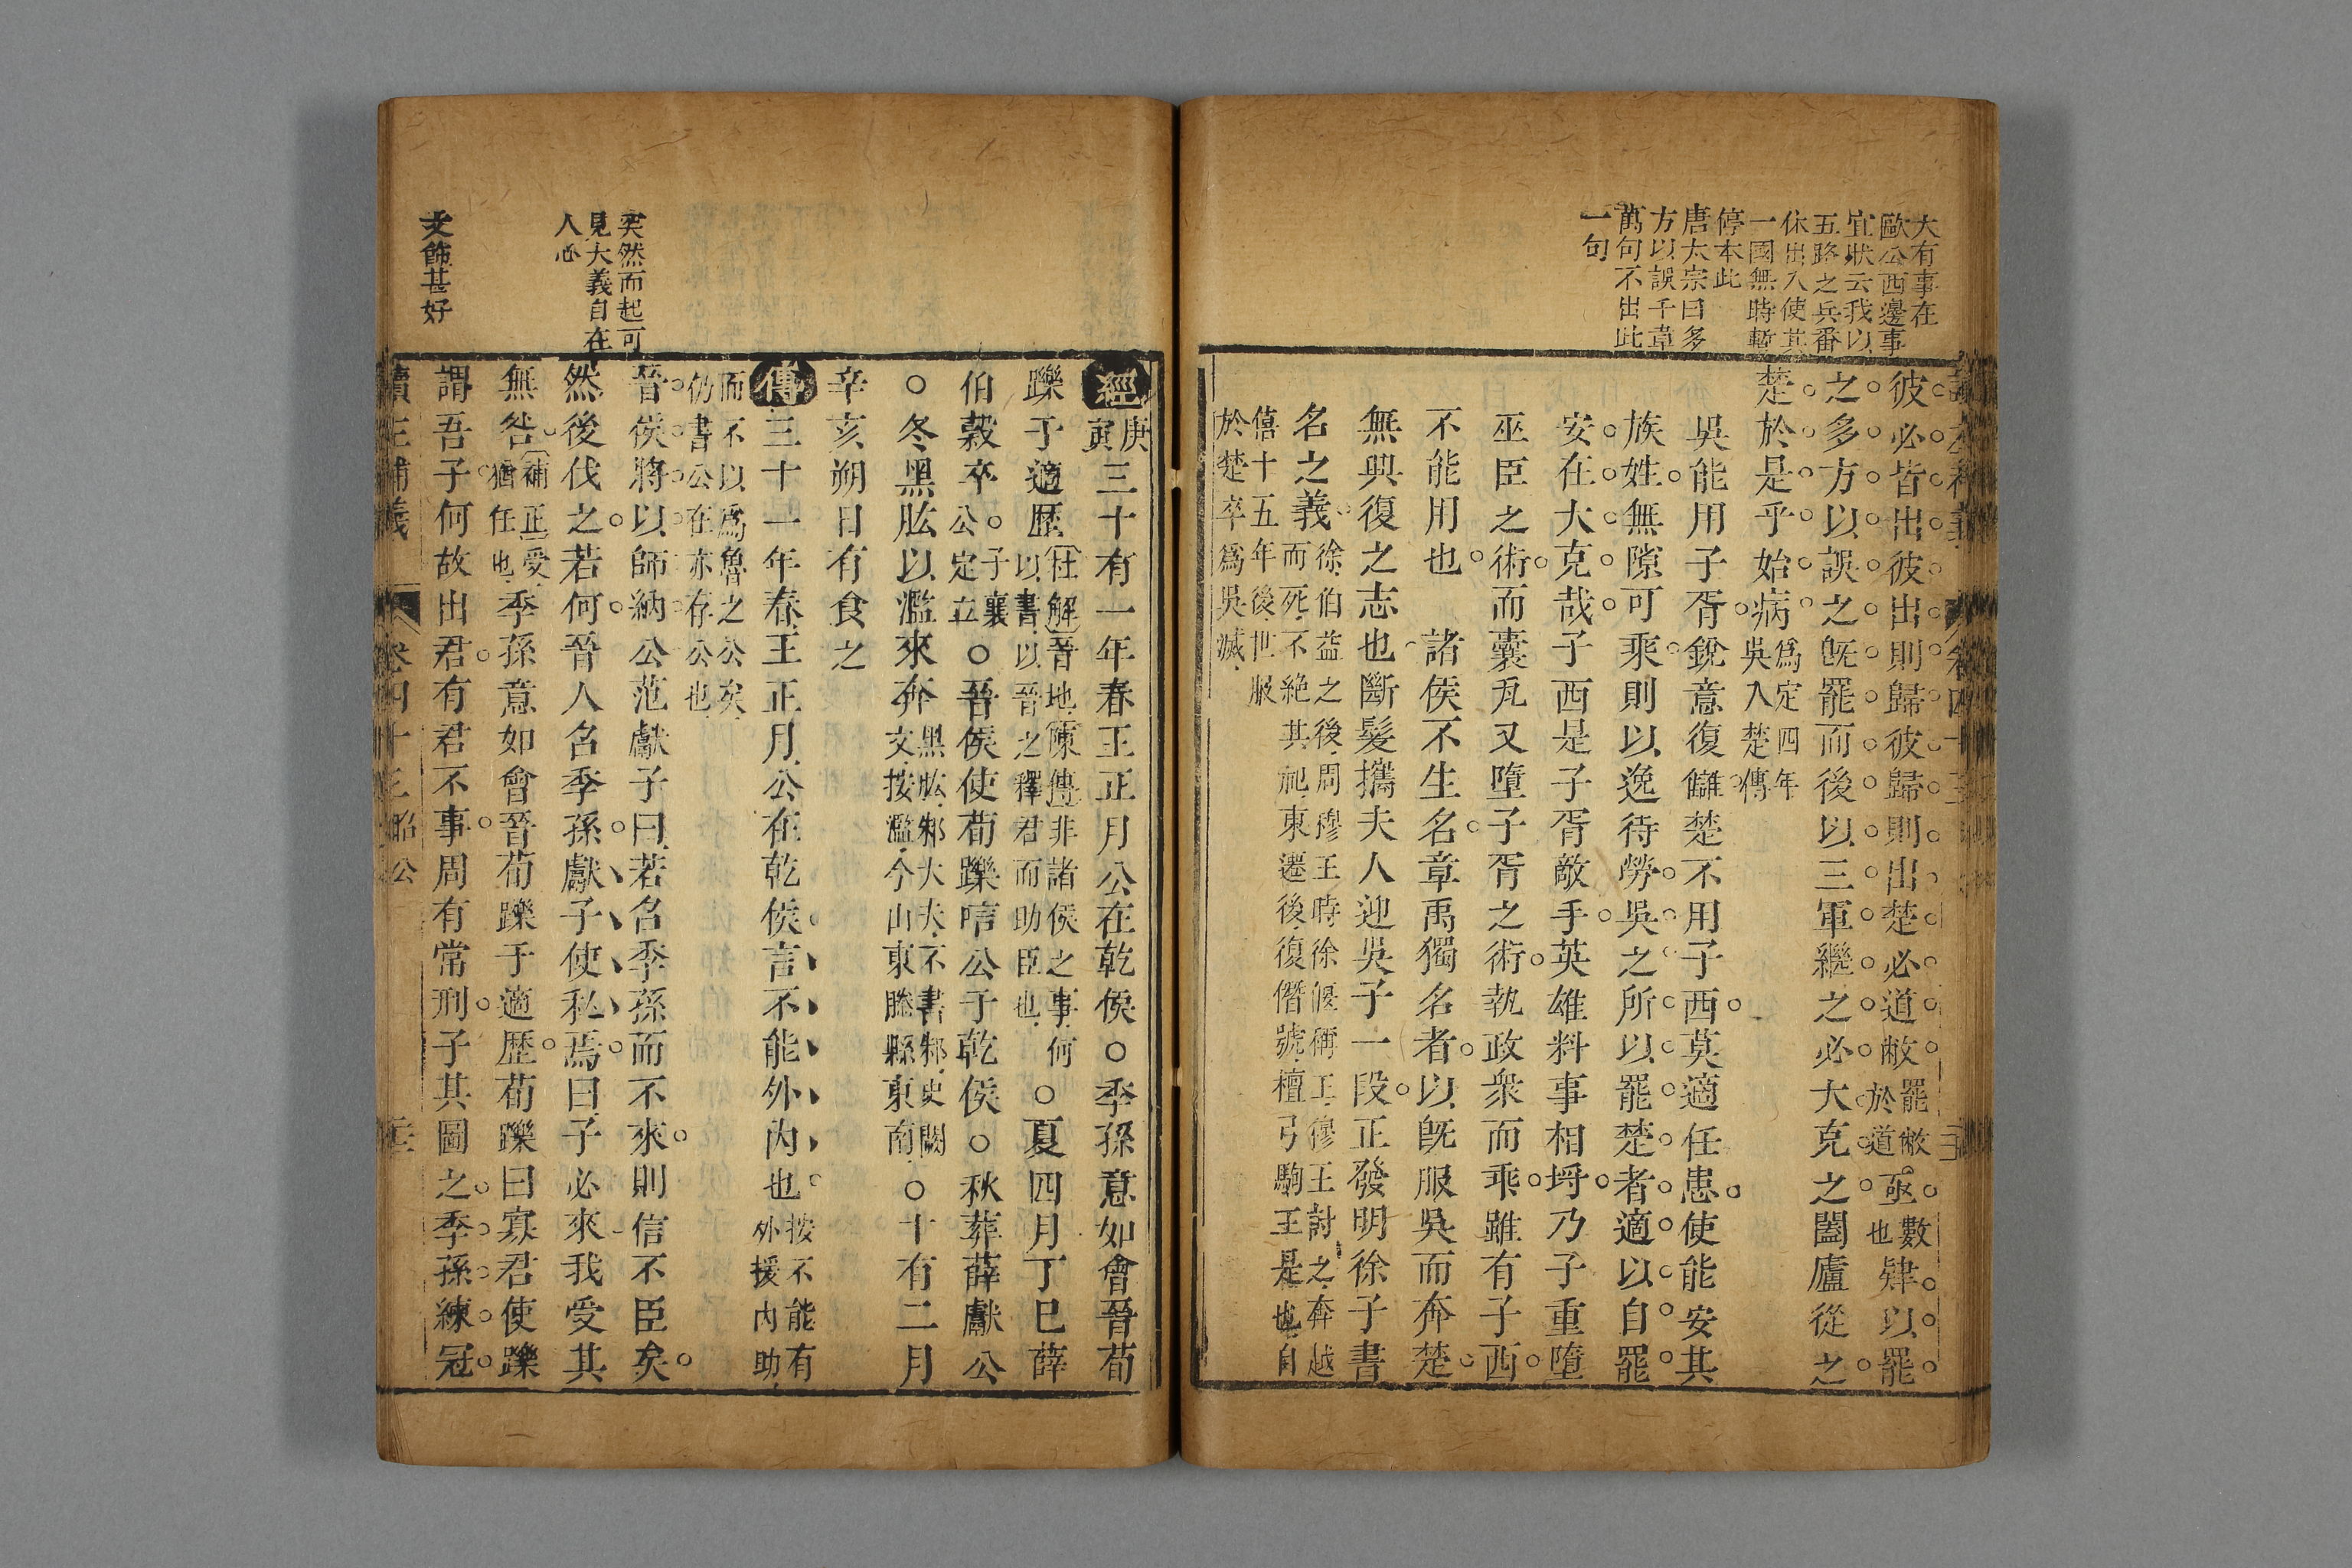 大有事在
歐公西邊事
宜狀云我以
五路之兵番
休出入使其
一國無時暫
停本此
唐太宗曰多
方以誤千章
萬句不出此
一句
彼必皆出彼出則歸彼歸則出楚必道敝罷敝於道亟數也肄以罷
之多方以誤之旣罷而後以三軍繼之必大克之闔廬從之
楚於是乎始病爲定四年吳入楚傳
吳能用子胥銳意復讎楚不用子西莫適任患使能安其
族姓無隙可乘則以逸待勞吳之所以罷楚者適以自罷
安在大克哉子西是子胥敵手英雄料事相埒乃子重墮
巫臣之術而囊瓦又墮子胥之術執政衆而乖雖有子西
不能用也 諸侯不生名章禹獨名者以旣服吳而奔楚
無興復之志也斷髮攜夫人迎吳子一段正發明徐子書
名之義徐伯益之後周穆王時徐偃稱王穆王討之奔越
而死不絕其祀東遷後復僭號檀弓駒王是也自
僖十五年後世服
於楚卒爲吳滅
經庚寅三十有一年春王正月公在乾侯○季孫意如會晉荀
躒于適歷杜解晉地陳傳非諸侯之事何以書以晉之釋君而助臣也○夏四月丁巳薛
伯穀卒子襄公定立○晉侯使荀躒唁公于乾侯○秋葬薛獻公
○冬黑肱以濫來奔黑肱邾大夫不書邾史闕文按濫今山東滕縣東南○十有二月
辛亥朔日有食之
傳三十一年春王正月公在乾侯言不能外內也按不能有外援內助
而不以爲魯之公矣
仍書公在亦存公也
晉侯將以師納公范獻子曰若召季孫而不來則信不臣矣
然後伐之若何晉人召季孫獻子使私焉曰子必來我受其
無咎補正受猶任也季孫意如會晉荀躒于適歷荀躒曰寡君使躒
謂吾子何故出君有君不事周有常刑子其圖之季孫練冠
突然而起可
見大義自在
人心
文飾甚好
讀左補義 卷四十三 昭公